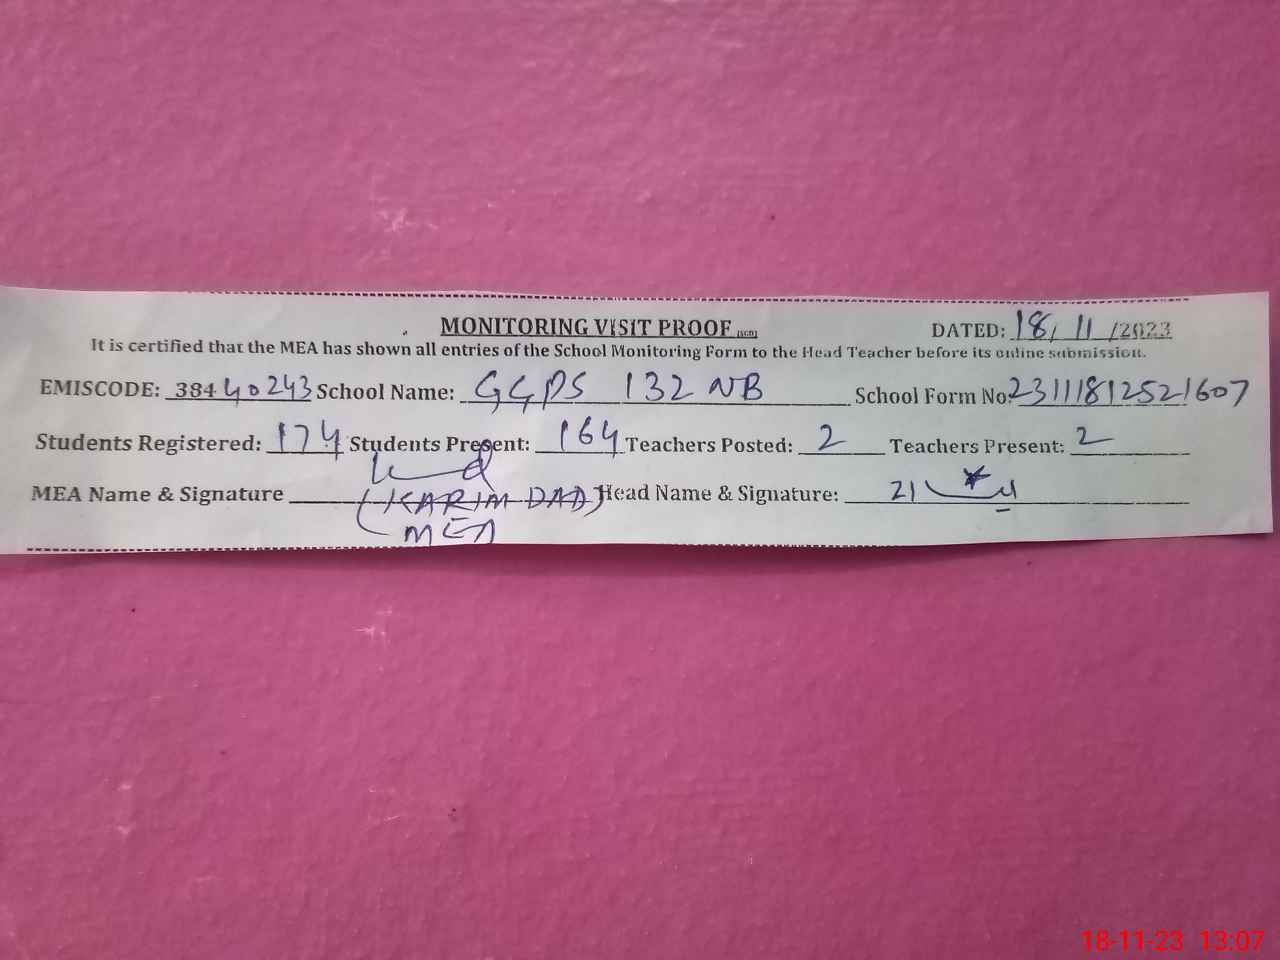 MONITORING VISIT PROOF DATED: 18/11/2023
It is certified that the MEA has shown all entries of the School Monitoring Form to the Head Teacher before its online submission.
EMISCODE: 38440243 School Name: GGPS 132 NB School Form No: 23111812521607
Students Registered: 174 Students Present: 164 Teachers Posted: 2 Teachers Present: 2
MEA Name & Signature (KARIM DAD) Head Name & Signature:
MEA
18-11-23 13:07